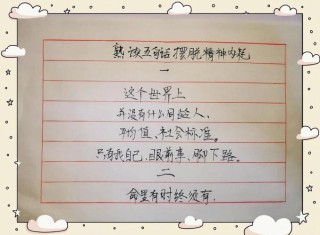 熟读五句话 摆脱精神内耗
一
这个世界上
并没有什么同龄人、
平均值、社会标准。
只有我自己,眼前事,脚下路。
二
命里有时终须有,